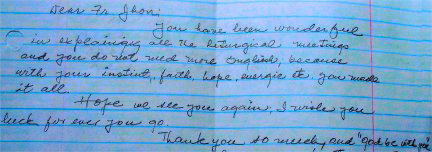 Dear Fr. Jhon:
You have been wonderful
in explainig all the liturgical meetings
and you do not need more English, because
with your instint, faith, hope, energie etc. you made
it all.
Hope we see you again, I wish you
luck for ever you go.
Thank you so much, and "god be with you"